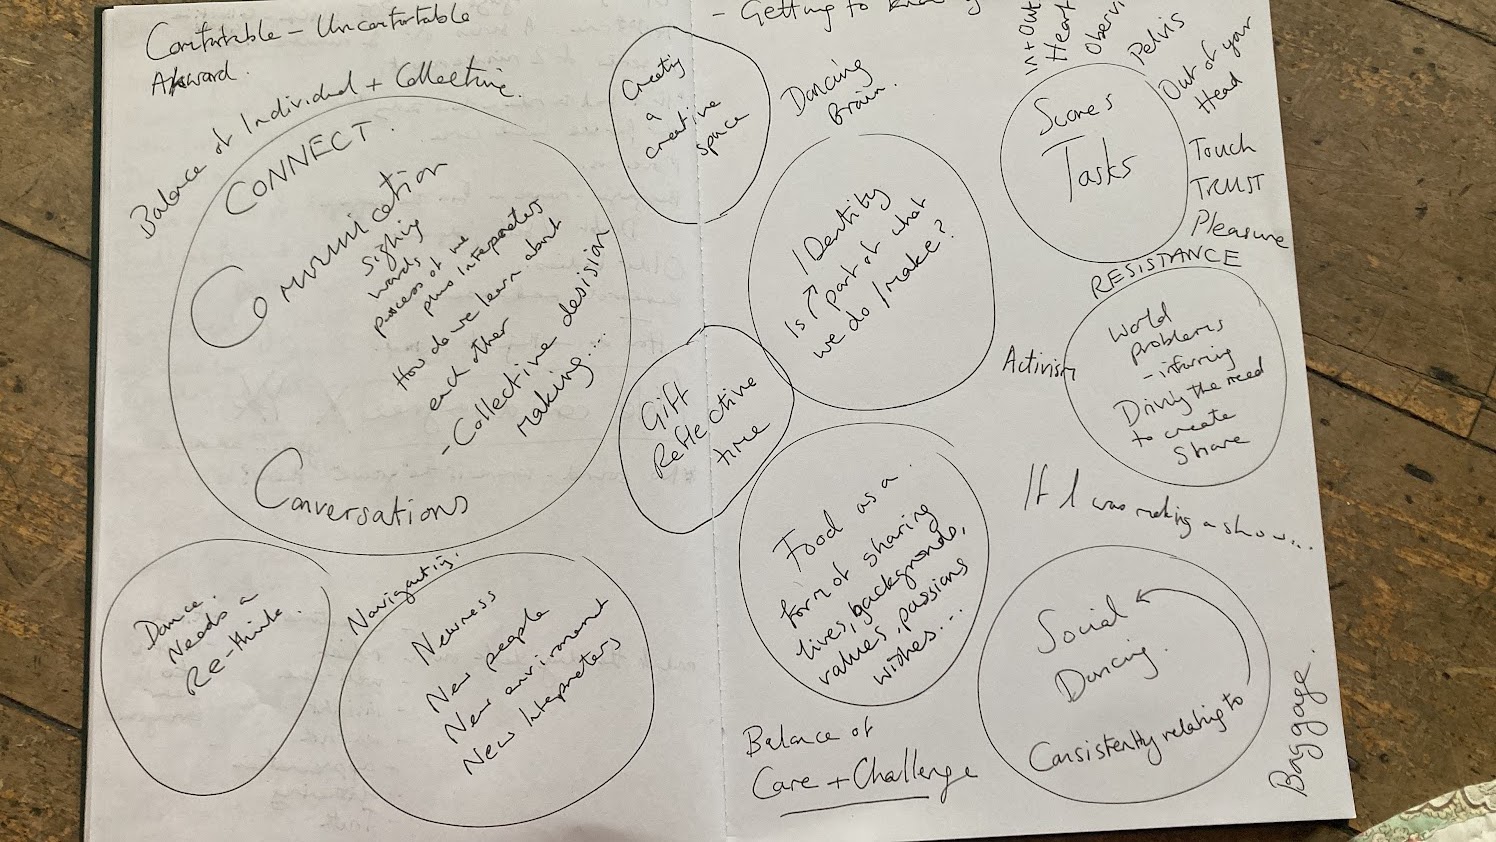 Comfortable - Uncomfortable
Akward.
Balance of Individual + Collective.
CONNECT.
Communication
Signing
words
process of we
plus Interpreters
How do we learn about
each other
- Collective desision
making...
Conversations
Dance.
Needs a
Re-think.
Navigating.
Newness
New people
New environment
New Interpreters
- Getting to
Creating
a
creative
space
Dancing
Brain.
IDentity
Is part of what
we do / make?
Gift
Reflective
time
Food as a
form of sharing
lives, backgrounds,
values, passions
wishes...
Balance of
Care + Challenge
In + Out
Heart
Pelvis
Out of your
Head
Scores
Tasks
Touch
TRUST
Pleasure
RESISTANCE
Activism
World
problems
- informing
Driving the need
to create
Share
If I was making a show...
Social
Dancing.
Consistently relating to
Baggage.